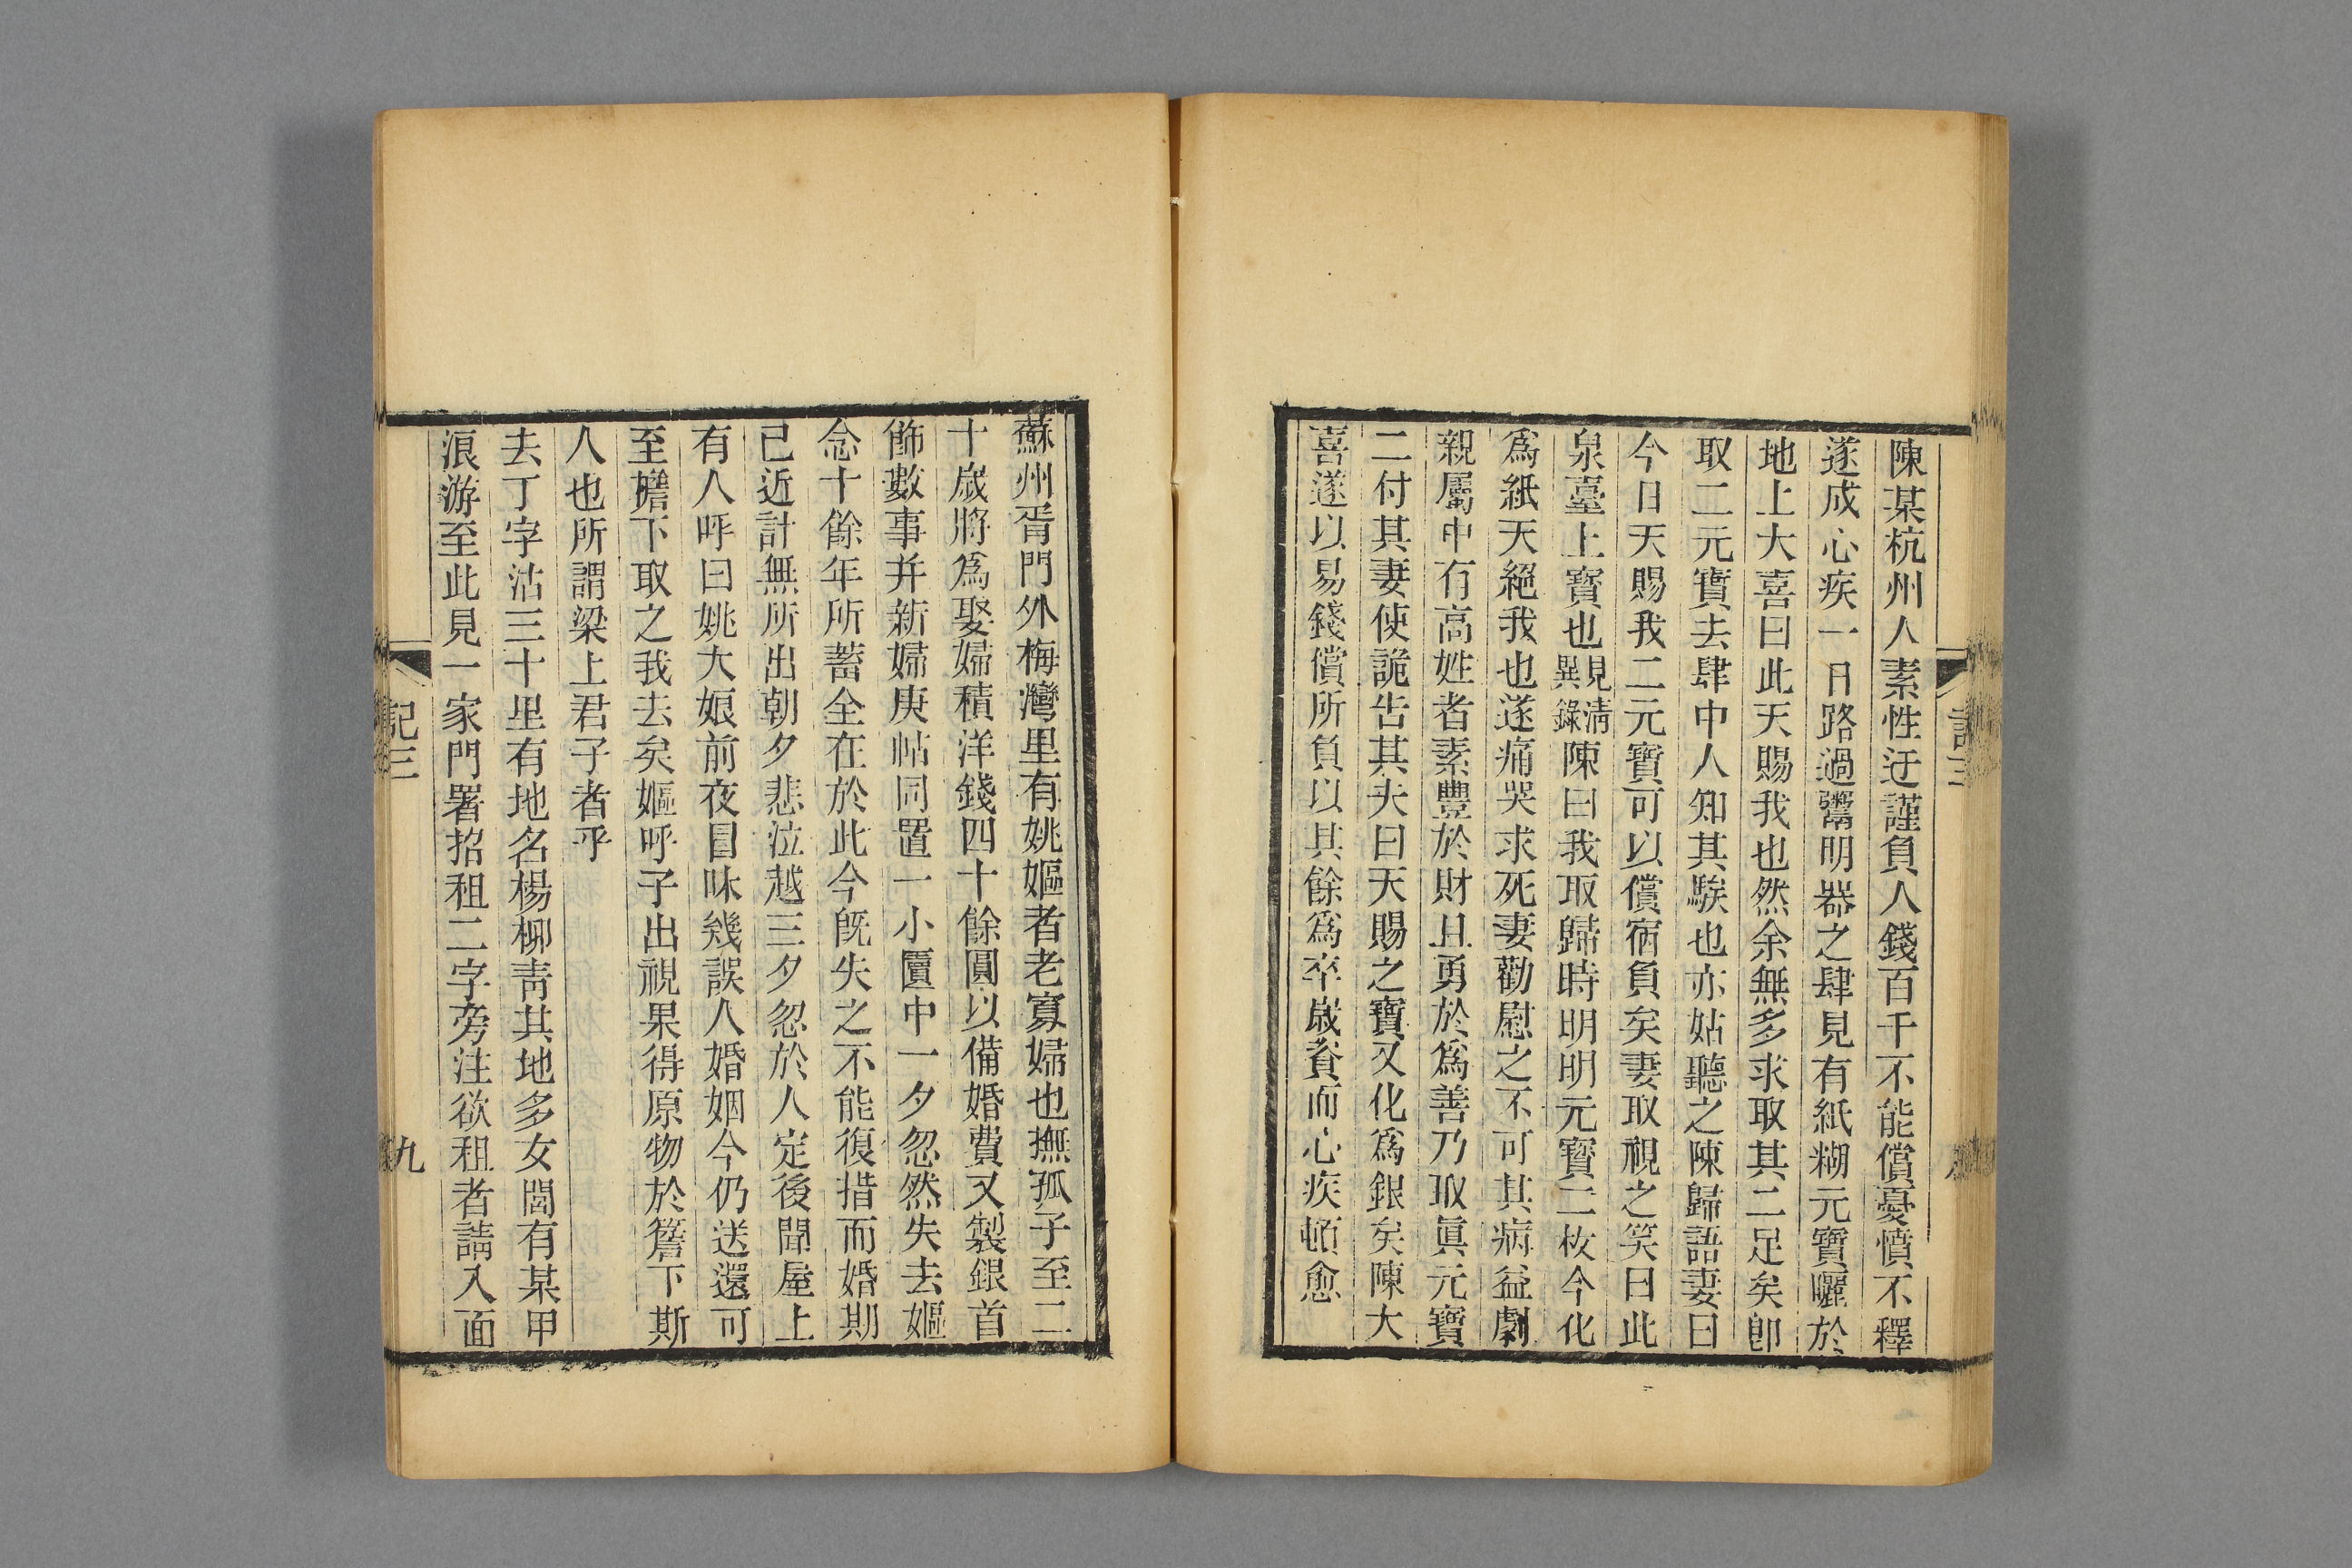 陳某杭州人素性迂謹負人錢百千不能償憂憤不釋
遂成心疾一日路過鬻明器之肆見有紙糊元寶曬於
地上大喜曰此天賜我也然余無多求取其二足矣卽
取二元寶去肆中人知其騃也亦姑聽之陳歸語妻曰
今日天賜我二元寶可以償宿負矣妻取視之笑曰此
泉臺上寶也見淸異錄陳曰我取歸時明明元寶二枚今化
爲紙天絕我也遂痛哭求死妻勸慰之不可其病益劇
親屬中有高姓者素豐於財且勇於爲善乃取眞元寶
二付其妻使詭告其夫曰天賜之寶又化爲銀矣陳大
喜遂以易錢償所負以其餘爲卒歲資而心疾頓愈
蘇州胥門外梅灣里有姚嫗者老寡婦也撫孤子至二
十歲將爲娶婦積洋錢四十餘圓以備婚費又製銀首
飾數事幷新婦庚帖同置一小匱中一夕忽然失去嫗
念十餘年所蓄全在於此今旣失之不能復措而婚期
已近計無所出朝夕悲泣越三夕忽於人定後聞屋上
有人呼曰姚大娘前夜冒昧幾誤人婚姻今仍送還可
至檐下取之我去矣嫗呼子出視果得原物於簷下斯
人也所謂梁上君子者乎
去丁字沽三十里有地名楊柳靑其地多女閭有某甲
浪游至此見一家門署招租二字旁注欲租者請入面
記三
九